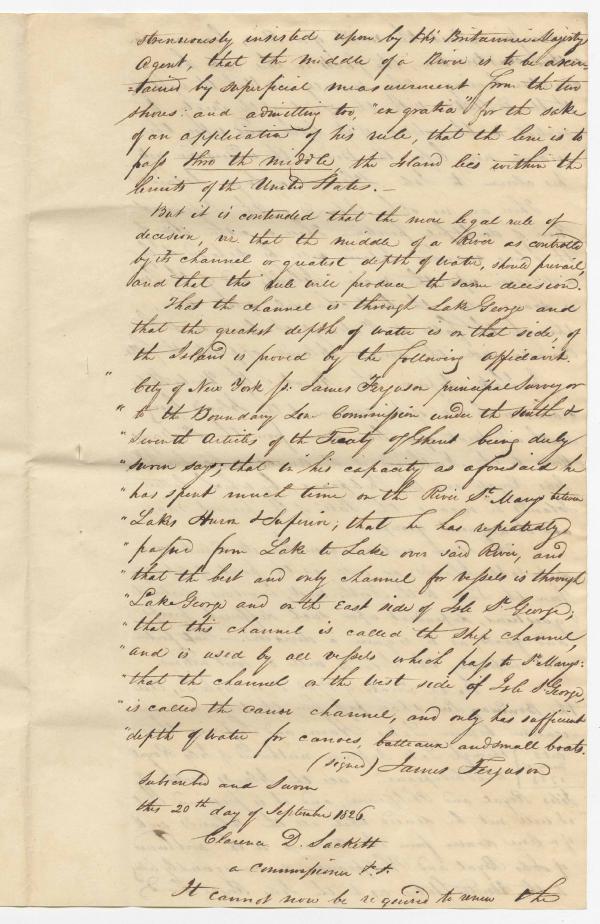 strenuously insisted upon by His Britannic Majesty
Agent, that the middle of a River is to be ascer-
-tained by superficial measurement from the two
shores: and admitting too, "ex gratia" for the sake
of an application of his rule, that the line is to
pass thro the middle, the Island lies within the
limits of the United States.—
But it is contended that the more legal rule of
decision, viz that the middle of a River as controlled
by its channel or greatest depth of water, should prevail,
and that this rule will produce the same decision.
That the channel is through Lake George and
that the greatest depth of water is on that side, of
the Island is proved by the following affidavit.
" City of New York ss. James Ferguson principal Surveyor
" to the Boundary Line Commission under the Sixth &
" Seventh Articles of the Treaty of Ghent being duly
" sworn says; that in his capacity as aforesaid he
" has spent much time on the River St. Marys between
" Lakes Huron & Superior; that he has repeatedly
" passed from Lake to Lake over said River, and
" that the best and only channel for vessels is through
" Lake George and on the East side of Isle St. George;
" that this channel is called the Ship channel,
" and is used by all vessels which pass to St. Marys:
" that the channel on the west side of Isle St. George,
" is called the canoe channel, and only has sufficient
" depth of water for canoes, batteaux and small boats.
(signed) James Ferguson
Subscribed and Sworn
this 20th day of September 1826
Clarence D. Sackett
a commissioner &.&.
It cannot now be required to renew the